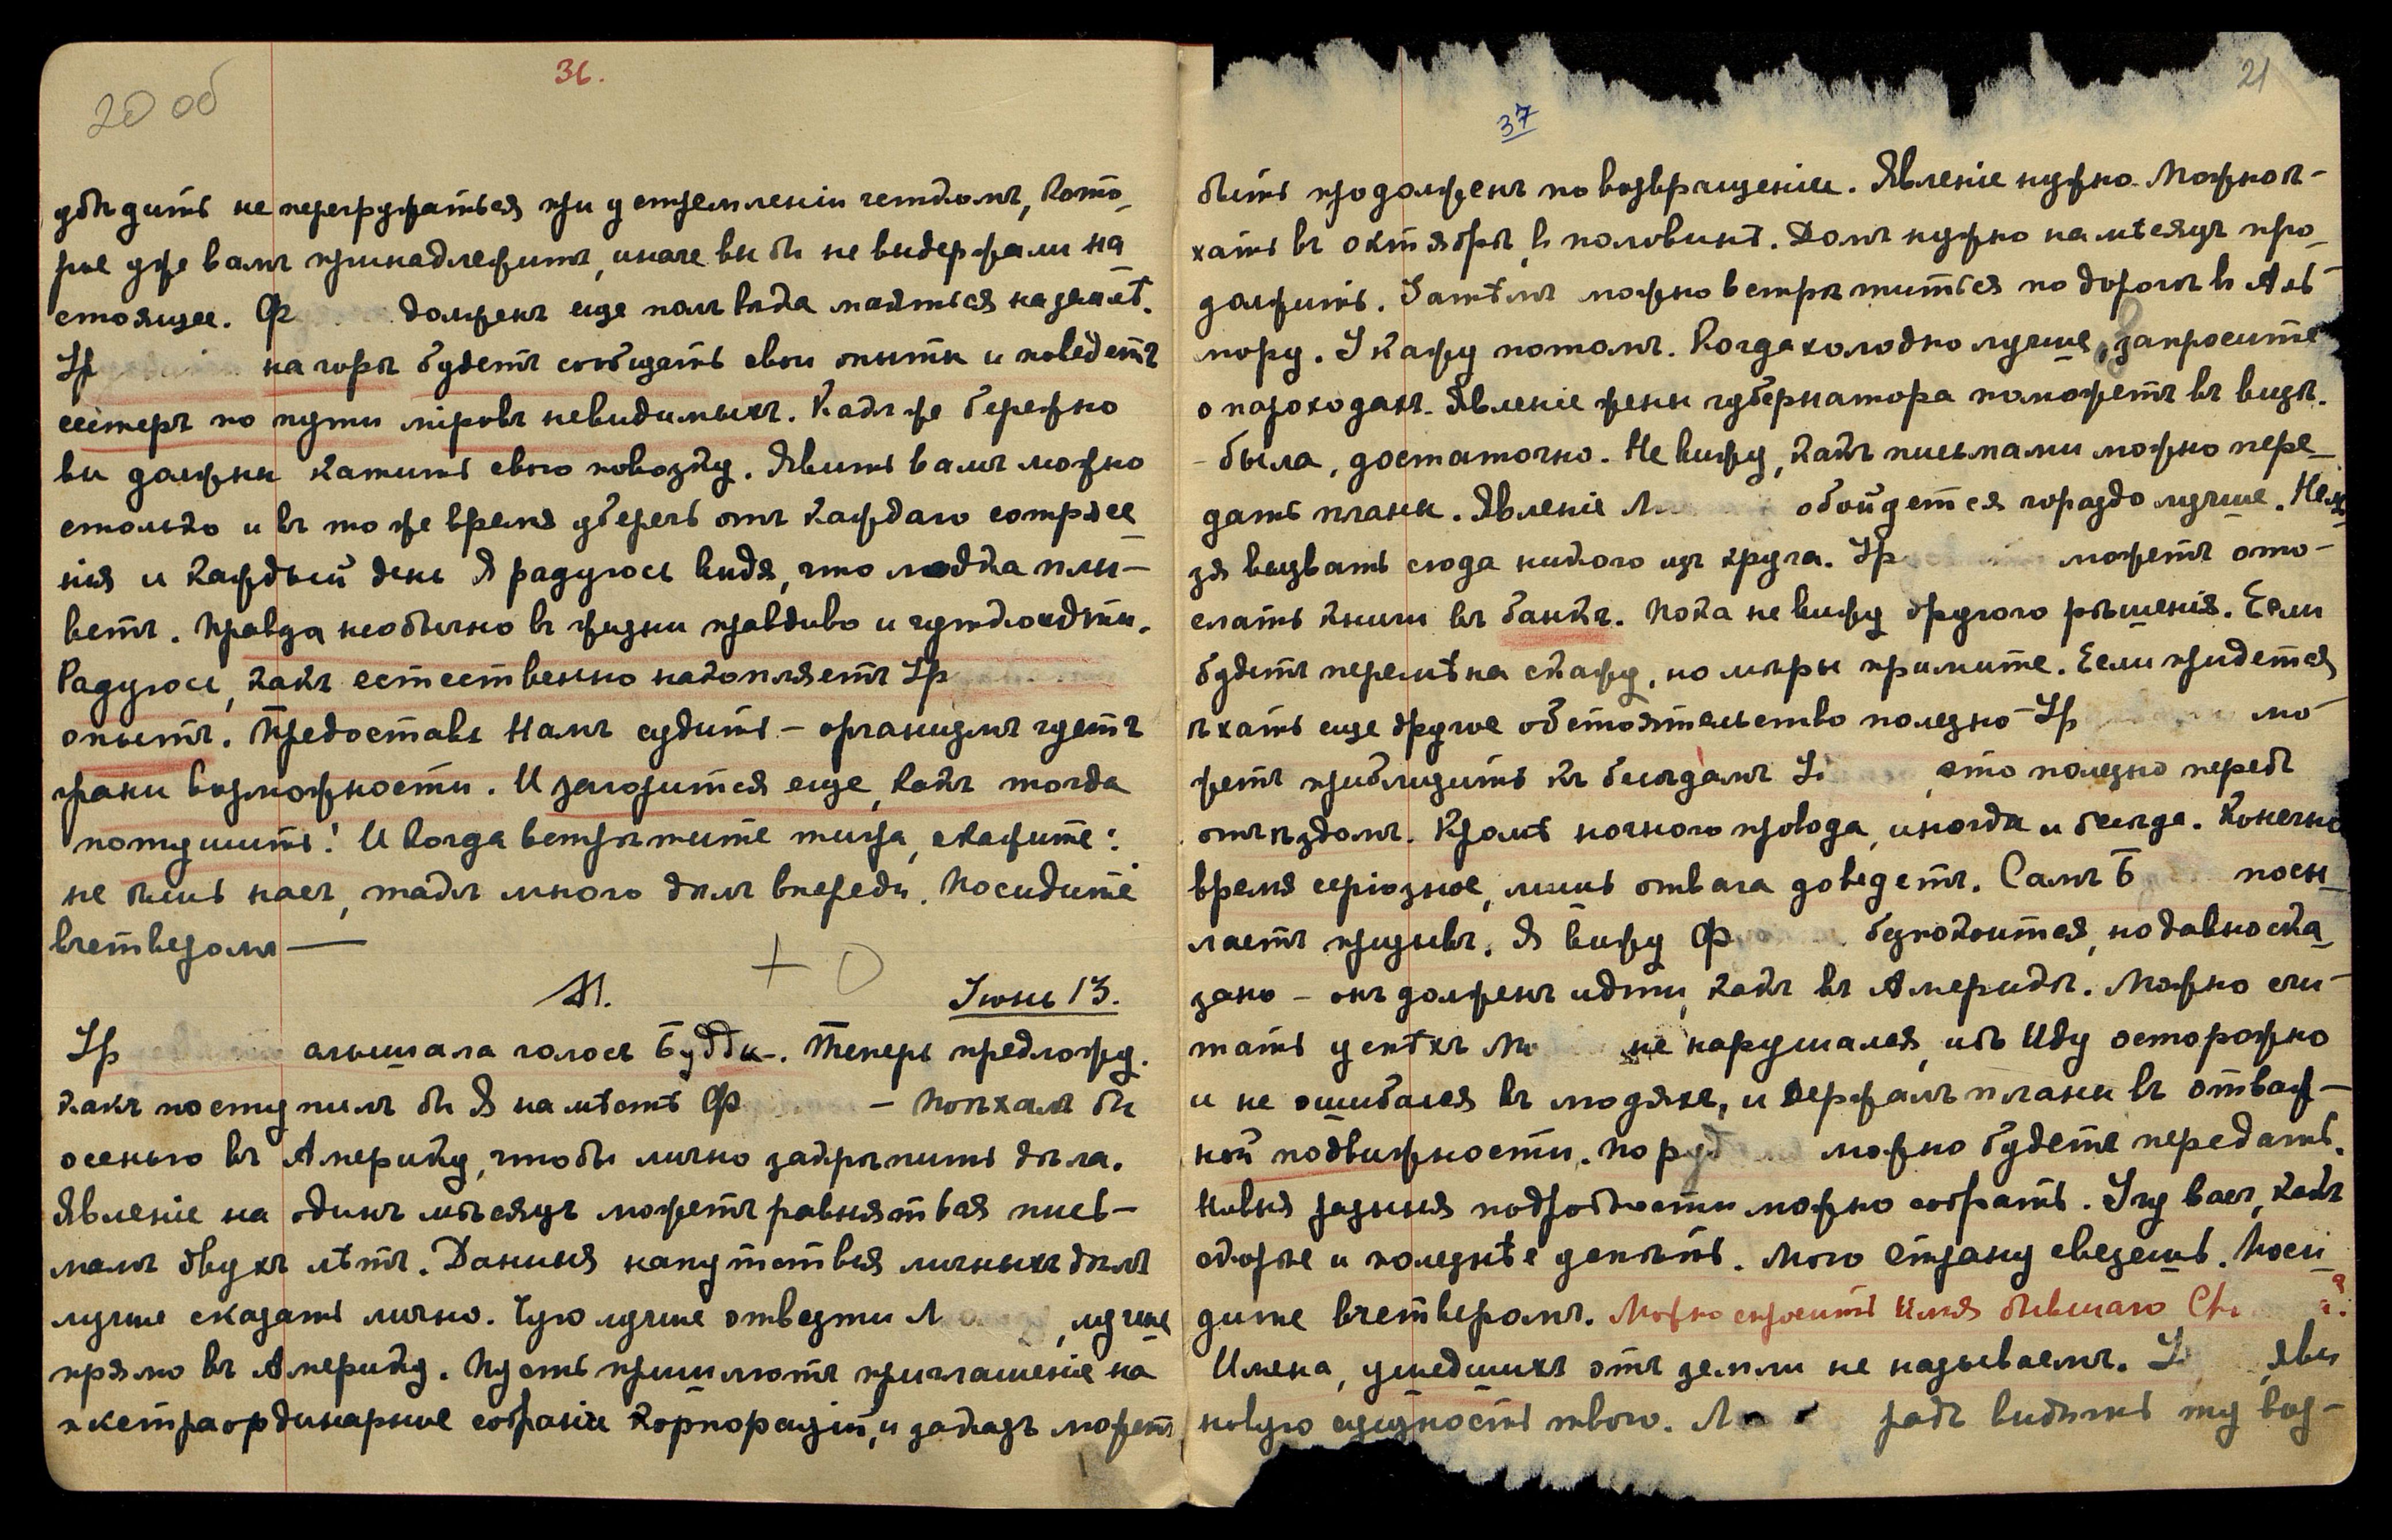 20 об
36.
убѣдить не перегружаться при устремленіи чёткомъ, кото-
рые уже вамъ принадлежитъ, иначе вы бы не выдержали на
стоящее. Ф долженъ еще полъ вѣка маяться на землѣ.
Ур на горѣ будетъ сообщать свои опыты и поведетъ
сестеръ по пути міровъ невидимыхъ. Какъ же бережно
вы должны катить свою повозку. Явить вамъ можно
столько и въ то же время уберечь отъ каждаго сотрясе-
нія и каждый день Я радуюсь видя, что лодка плы-
ветъ. Правда необычно въ жизни правдиво и чутко идти.
Радуюсь, какъ естественно накопляетъ Ур
опытъ. Предоставь Намъ судить – организмъ чуетъ
грани возможности. И загорится еще, какъ тогда
потушить! И когда встрѣтите тигра, скажите:
не ѣшь насъ, такъ много дѣлъ впереди. Посидите
вчетверомъ —
+ О
М. Іюнь 13.
Ур слышала голосъ Будды. Теперь предложу.
какъ поступилъ бы Я на мѣстѣ Ф – поѣхалъ бы
осенью въ Америку, чтобы лично закрѣпить дѣла.
Явленіе на одинъ мѣсяцъ можетъ равняться пись-
мамъ двухъ лѣтъ. Данныя напутствія личныхъ дѣлъ
лучше сказать лично. Чую лучше отвезти Л , лучше
прямо въ Америку. Пусть пришлютъ приглашеніе на
экстраординарные собранія Корпорацій, и заказъ можетъ
21
37
быть продолженъ по возвращеніи. Явленіе нужно. Можно ѣ-
хать въ октябрѣ, в половинѣ. Домъ нужно на мѣсяцъ про-
должить. Затѣмъ можно встрѣтиться по дорогѣ в Аль-
мору. Укажу потомъ. Когда холодно лучше, запросите
о пароходахъ. Явленіе жены губернатора поможетъ въ визѣ.
– была, достаточно. Не вижу, какъ письмами можно пере-
дать планы. Явленіе Л обойдется гораздо лучше. Нель
зя вызвать сюда никого изъ круга. Ур можетъ ото-
слать книги въ банкъ. Пока не вижу другого рѣшенія. Если
будетъ перемѣна скажу, но мѣры примите. Если придется
ѣхать еще другое обстоятельство полезно – Ур мо-
жетъ приблизить къ бесѣдамъ , это полезно передъ
отъѣздомъ. Кромѣ ночного провода, иногда и бесѣда. Конечно
время серіозное, лишь отвага доведетъ. Самъ Б посы-
лаетъ призывъ. Я вижу Ф безпокоится, но давно ска-
зано – онъ долженъ идти, какъ въ Америкѣ. Можно счи-
тать успѣхъ не нарушался, ибо Иду осторожно
и не ошибался въ людяхъ, и держалъ планы въ отваж-
ной подвижности. можно будетъ передать.
подробности можно собрать. Учу васъ, какъ
скорѣе и полезнѣе успѣть. Мою Страну сведешь. Поси
дите вчетверомъ. Можно спросить Имя бывшаго Св ?
Имена, ушедшихъ отъ земли не называемъ. , яви
новую сущность твою. Л радъ видѣть ту воз-